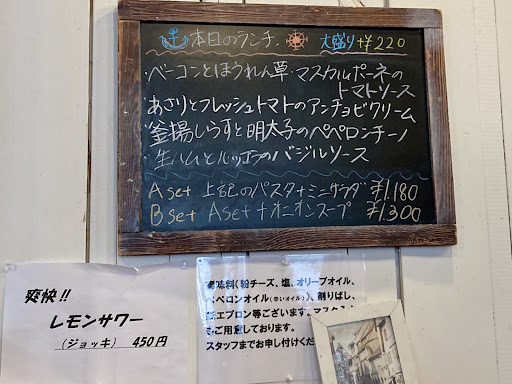 本日のランチ. 大盛り+¥220
・ベーコンとほうれん草・マスカルポーネの
トマトソース
・あさりとフレッシュトマトのアンチョビクリーム
・釜揚しらすと明太子のペペロンチーノ
・生ハムとルッコラのバジルソース
Aset 上記のパスタ+ミニサラダ ¥1.180
Bset Aset+オニオンスープ ¥1.300
爽快!!
レモンサワー
(ジョッキ) 450円
味料(粉チーズ、塩、オリーブオイル、
ペロンオイル(辛いオイル)、削りぶし、
エプロン等ございます。マスク
ご用意しております。
スタッフまでお申し付けくだ